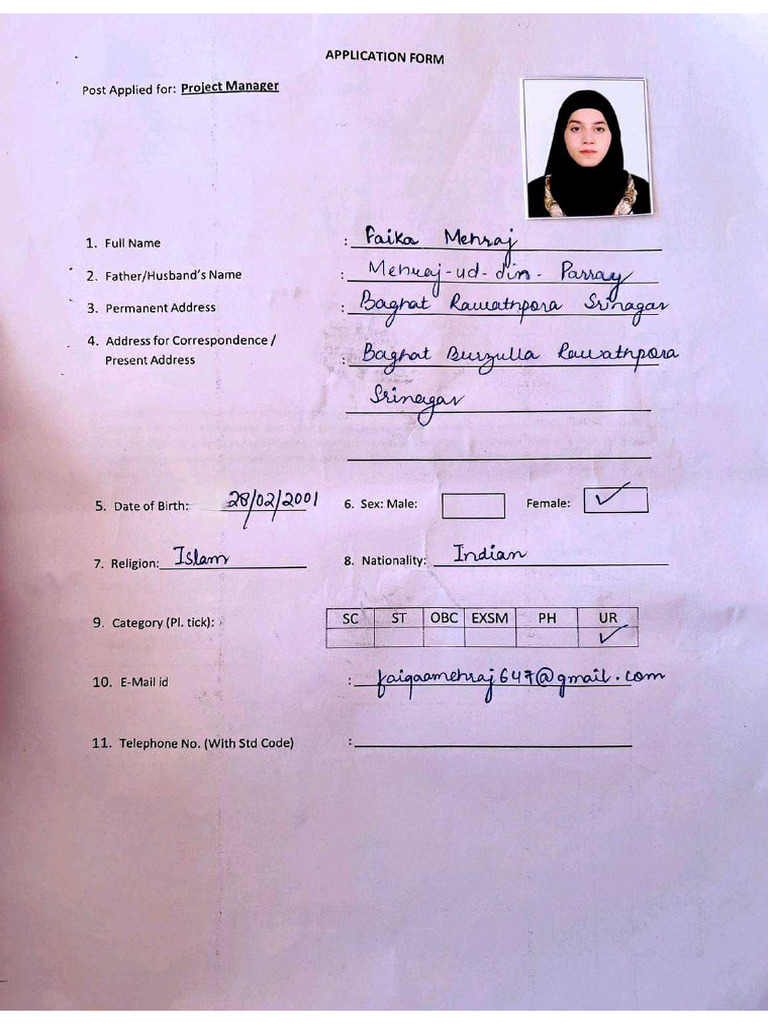 APPLICATION FORM
Post Applied for: Project Manager
1. Full Name : Faika Mehraj
2. Father/Husband's Name : Mehraj-ud-din- Parray
3. Permanent Address : Baghat Rawathpora Srinagar
4. Address for Correspondence /
Present Address : Baghat Burzulla Rawathpora
Srinagar
5. Date of Birth: 28/02/2001 6. Sex: Male: Female: ✓
7. Religion: Islam 8. Nationality: Indian
9. Category (Pl. tick): SC ST OBC EXSM PH UR
✓
10. E-Mail id : faiqaamehraj647@gmail.com
11. Telephone No. (With Std Code) :